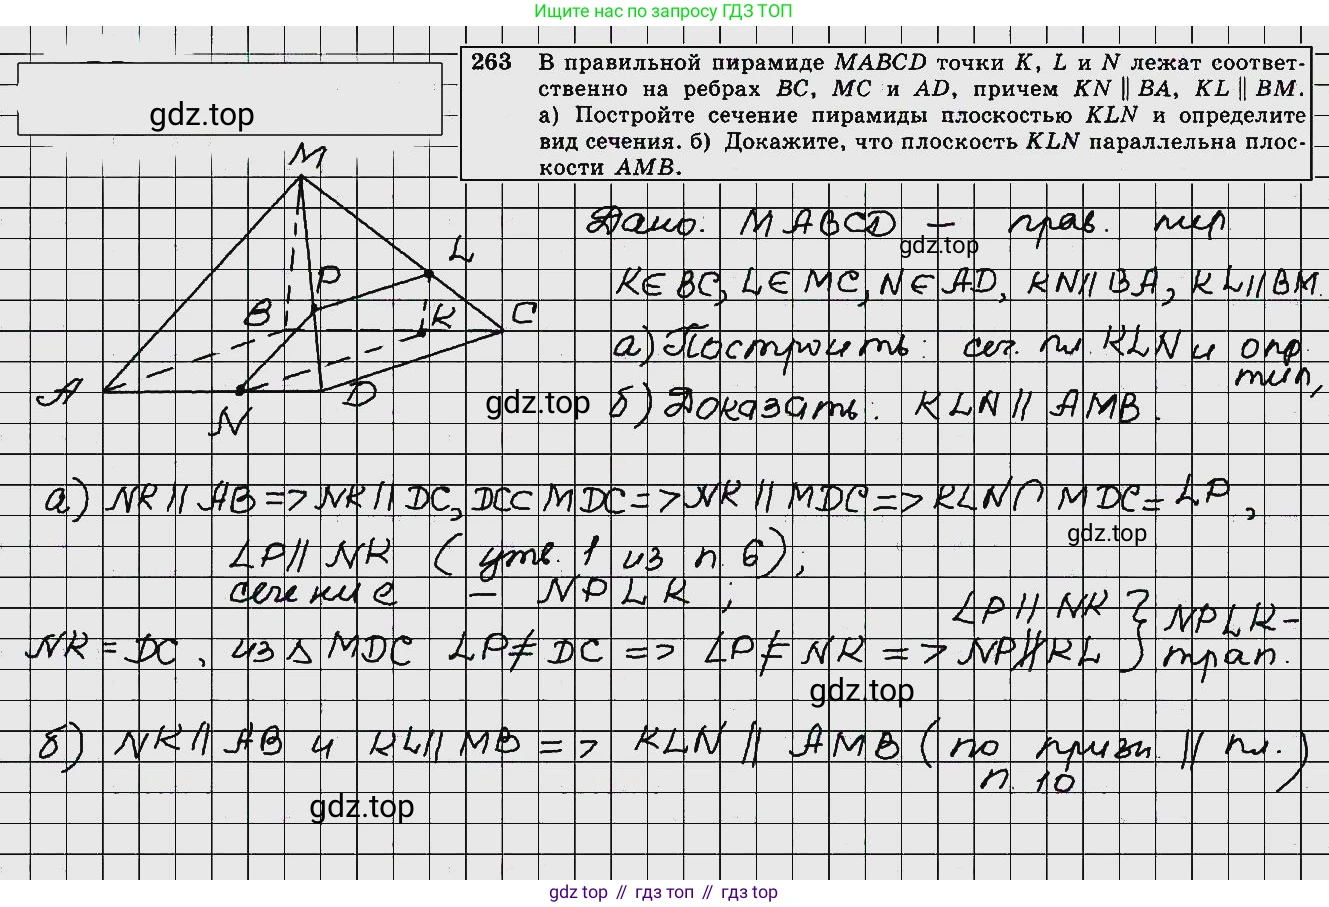 Ищите нас по запросу ГДЗ ТОП
263 В правильной пирамиде MABCD точки K, L и N лежат соответ-
ственно на ребрах BC, MC и AD, причем KN ∥ BA, KL ∥ BM.
а) Постройте сечение пирамиды плоскостью KLN и определите
вид сечения. б) Докажите, что плоскость KLN параллельна плос-
кости AMB.
gdz.top
M
L
P
B
K
C
A
N
D
Дано: MABCD – прав. пир
gdz.top
K∈BC, L∈MC, N∈AD, KN∥BA, KL∥BM.
а) Построить: сеч. пл. KLN и опр.
тип,
gdz.top
б) Доказать: KLN ∥ AMB.
а) NK∥AB => NK∥DC, DC⊂MDC => NK∥MDC => KLN∩MDC=LP,
gdz.top
LP∥NK (утв. 1 из п. 6);
сечение – NPLK;
NK = DC, из Δ MDC LP≠DC => LP≠NK => NP∦KL
LP∥NK } NPLK –
трап.
gdz.top
б) NK∥AB и KL∥MB => KLN ∥ AMB (по призн. ∥ пл.)
п. 10
gdz.top
gdz top // гдз топ // gdz top